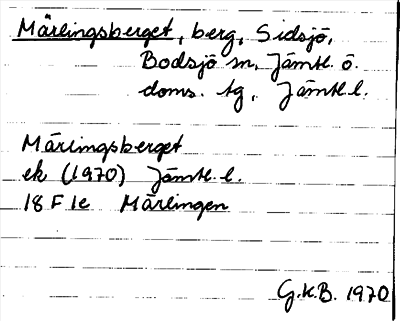 Märlingsberget, berg, Sidsjö,
Bodsjö sn, Jämtl. ö.
doms. tg, Jämtl l.
Märlingsberget
ek (1970) Jämtl. l.
18 F 1e Märlingen
G.K.B. 1970